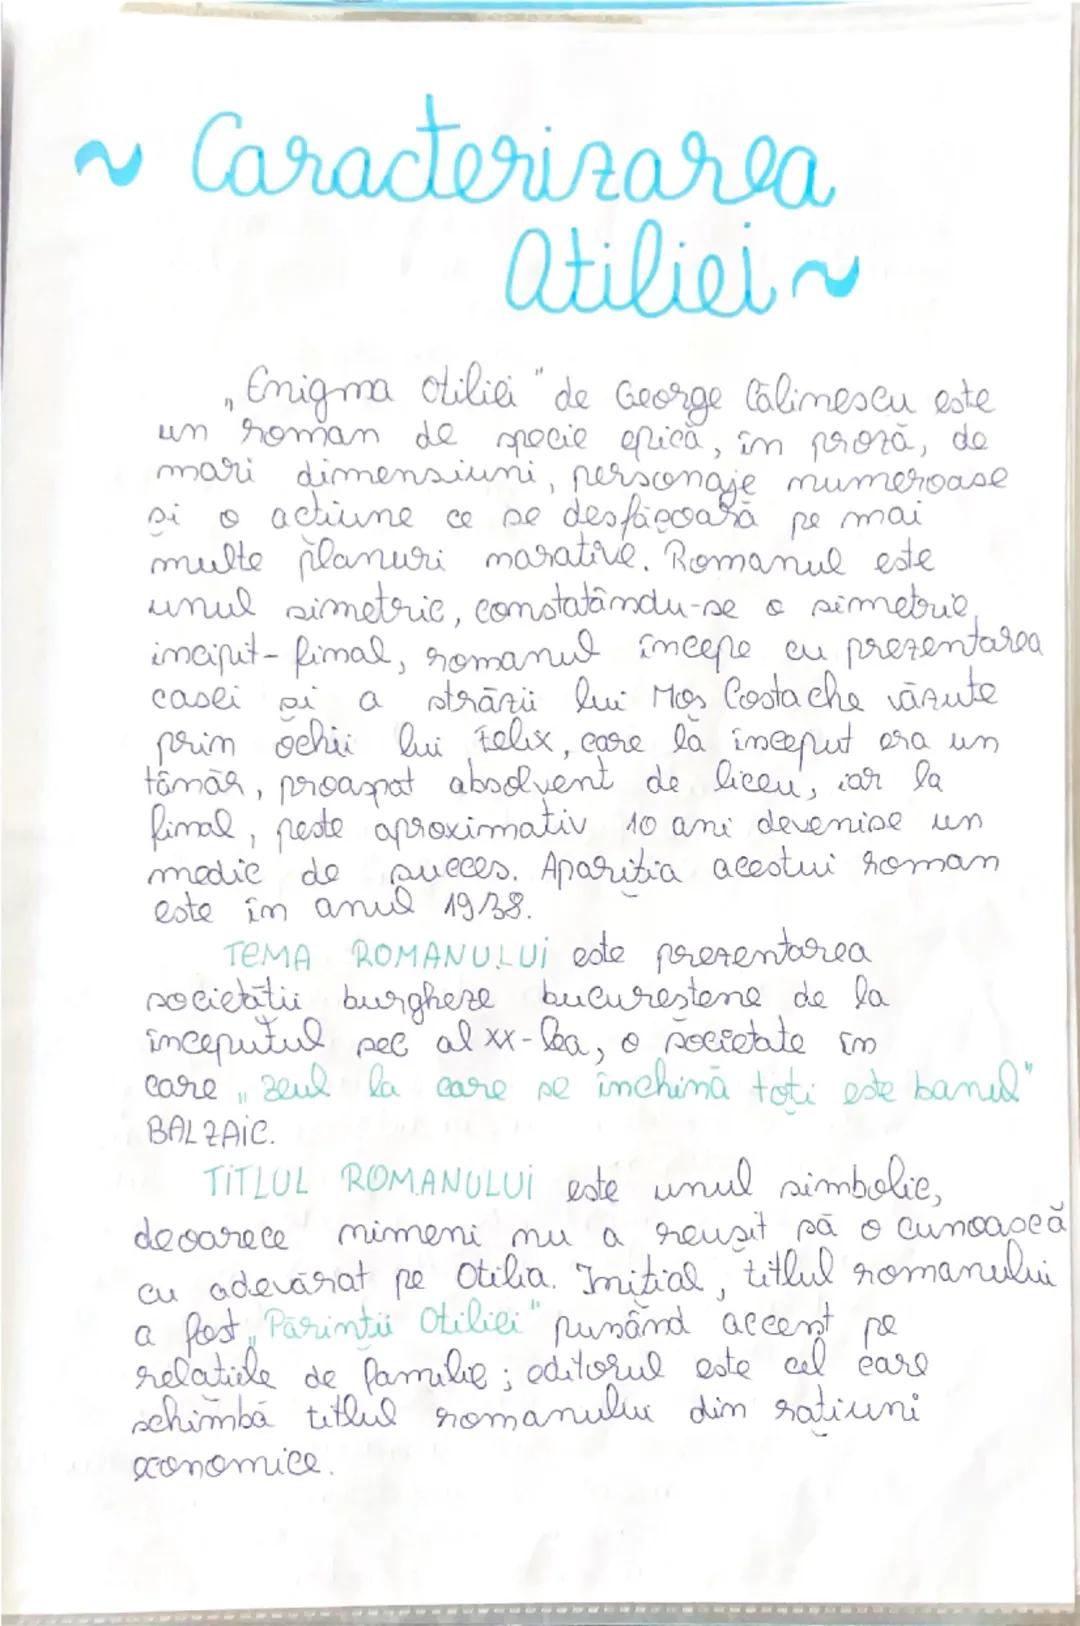 ~ Caracterizarea
Otiliei ~
„Enigma Otiliei" de George Călinescu este
un roman de specie epică, în proză, de
mari dimensiuni, personaje numeroase
și o acțiune ce se desfășoară pe mai
multe planuri narative. Romanul este
unul simetric, constatându-se o simetrie
incipit-final, romanul începe cu prezentarea
casei și a străzii lui Moș Costache văzute
prin ochii lui Felix, care la început era un
tânăr, proaspat absolvent de liceu, iar la
final, peste aproximativ 10 ani devenise un
medic de succes. Apariția acestui roman
este în anul 1938.
TEMA ROMANULUI este prezentarea
societății burgheze bucureștene de la
începutul sec al XX-lea, o societate în
care „zeul la care se închină toți este banul"
BALZAIC.
TITLUL ROMANULUI este unul simbolic,
deoarece nimeni nu a reușit să o cunoască
cu adevărat pe Otilia. Inițial, titlul romanului
a fost „Părinții Otiliei" punând accent pe
relațiile de familie; editorul este cel care
schimbă titlul romanului din rațiuni
economice.